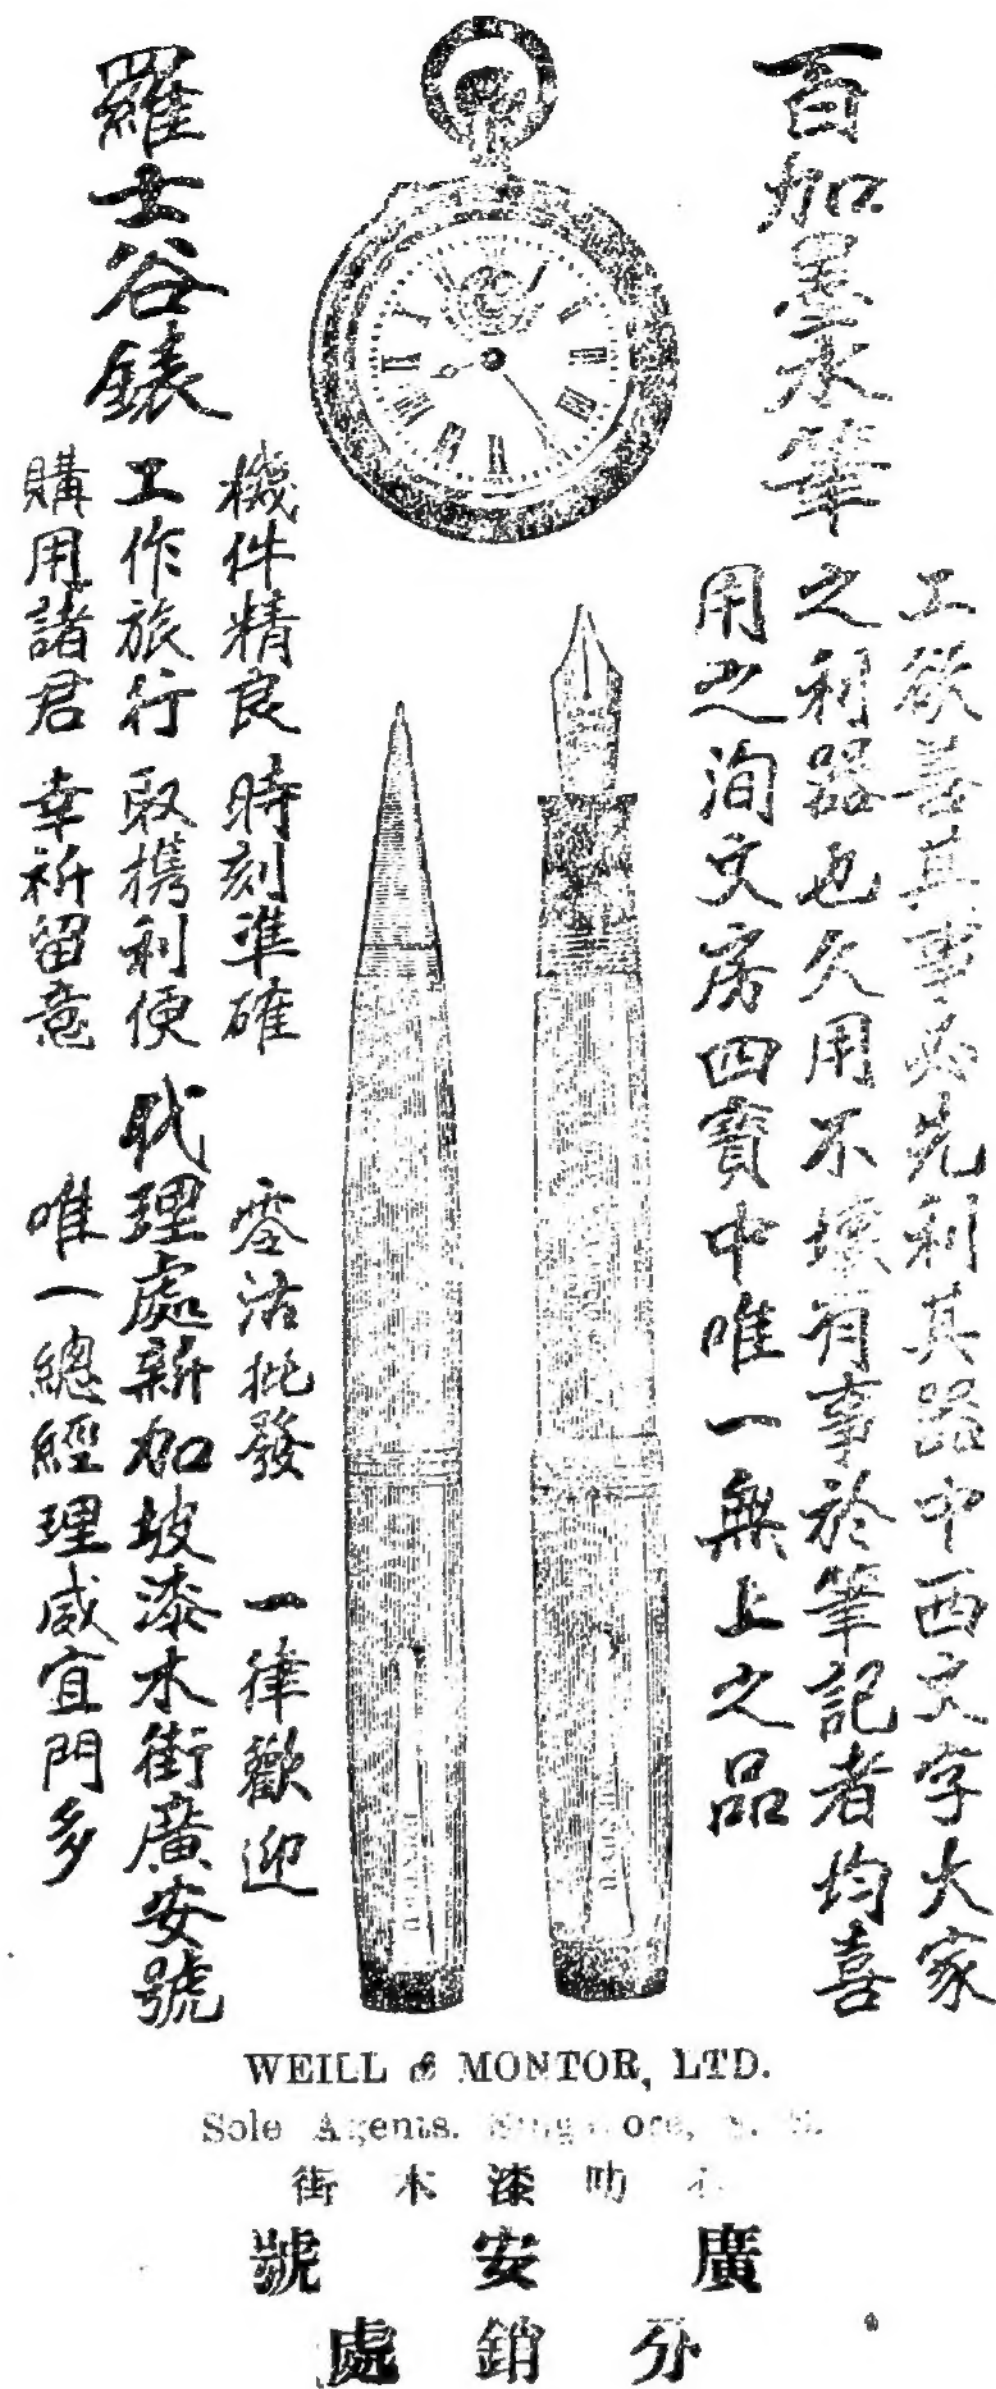 百加墨水筆
工欲善其事必先利其器中西文字大家
之利器也久用不壞有事於筆記者均喜
用之洵文房四寶中唯一無上之品
羅士谷錶
機件精良 時刻準確
工作旅行 取携利便
購用諸君 幸祈留意
零沽批發 一律歡迎
代理處新加坡漆木街廣安號
唯一總經理威宜門多
WEILL & MONTOR, LTD.
Sole Agents. Singapore,
叻漆木街
廣安號
分銷處